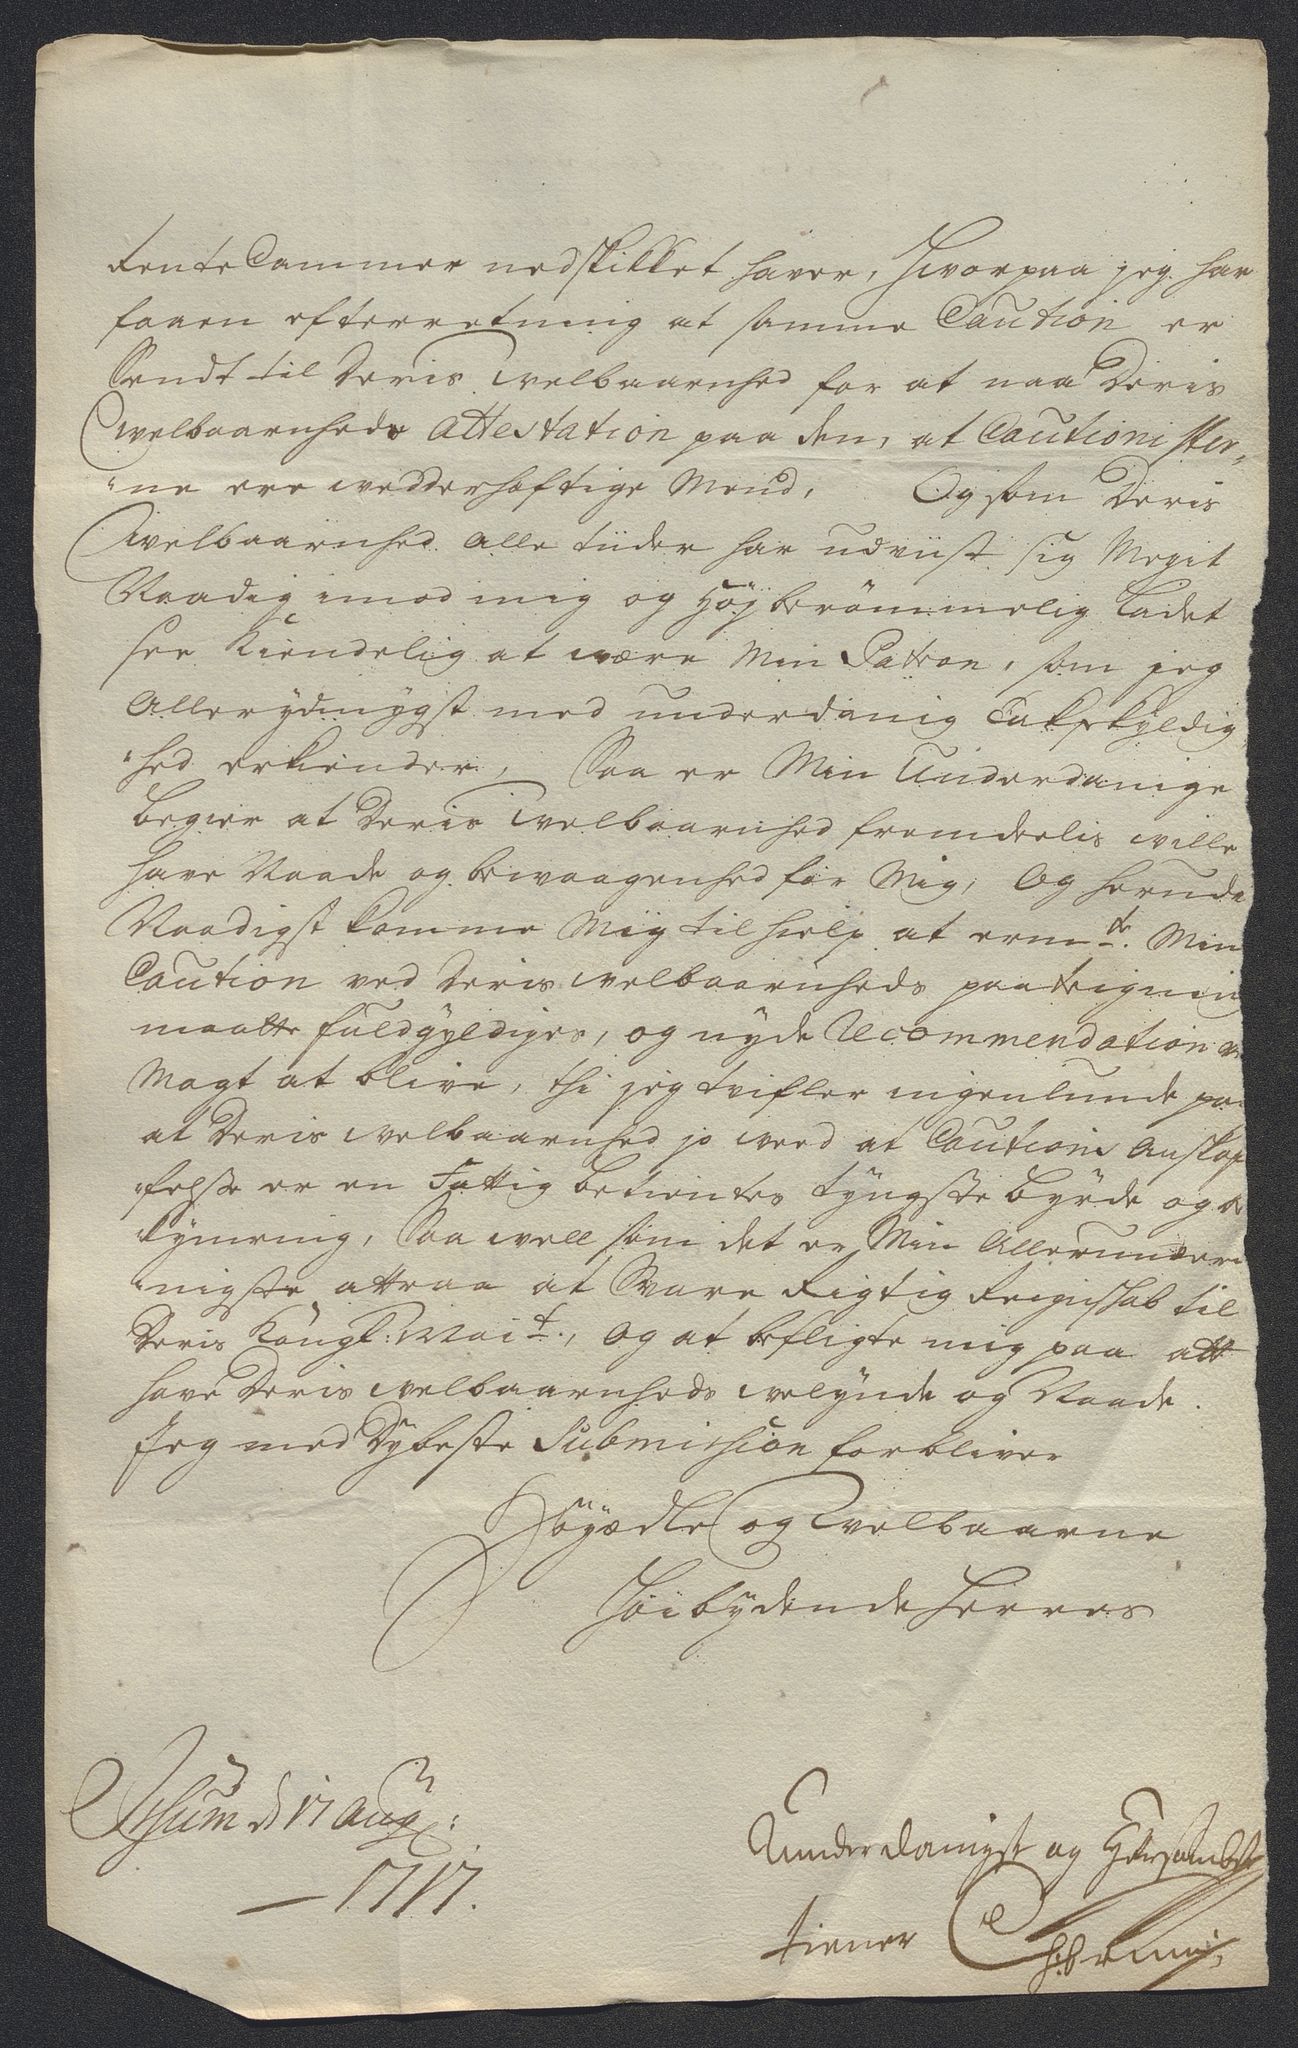 RenteCammer nedskikket haver, Hvorpaa jeg har
faaen efterretning at samme Caution er
Sendt til Deris Welbaarnhed for at naa Deris
Welbaarnheds Attestation paa den, at Cautionister,,
"ne ere wedderhæftige Mend, Og som Deris
Welbaarnhed alle tiider har udviist sig Megit
Naadig imod mig og Høyberömmelig ladet
see Kiendelig at være Min Patron, som jeg
Allerydmygst med underdanig Takskyldig
"hed erkiender, Saa er Min Underdanige
begier at Deris Welbaarnhed fremdeelis wille
have Naade og bevaagenhed for Mig, Og herude
Naadigst komme Mig til hielp at ermte. Min
Caution ved Deris Welbaarnheds paateigning
maatte fuldgyldiges, og nyde Recommendation
Magt at blive, thi jeg tvifler ingenlunde paa
at Deris welbaarnhed jo weed at Cautions Anskaf
"felsse er en Fattig betientes tyngste byrde og be
kymring, Saa well som det er Min Allerunder
"nigste attraa at Svare Rigtig Reignskab til
Deris Kongl: Mait., og at befligte mig paa att
have Deris welbaarnheds welynde og Naade.
Jeg med Dybeste Submission forbliver
Höyædle og Welbaarne
Høibydende Herres
d 17 Aug:
1717.
Underdanigst og Hørsambste
tiener